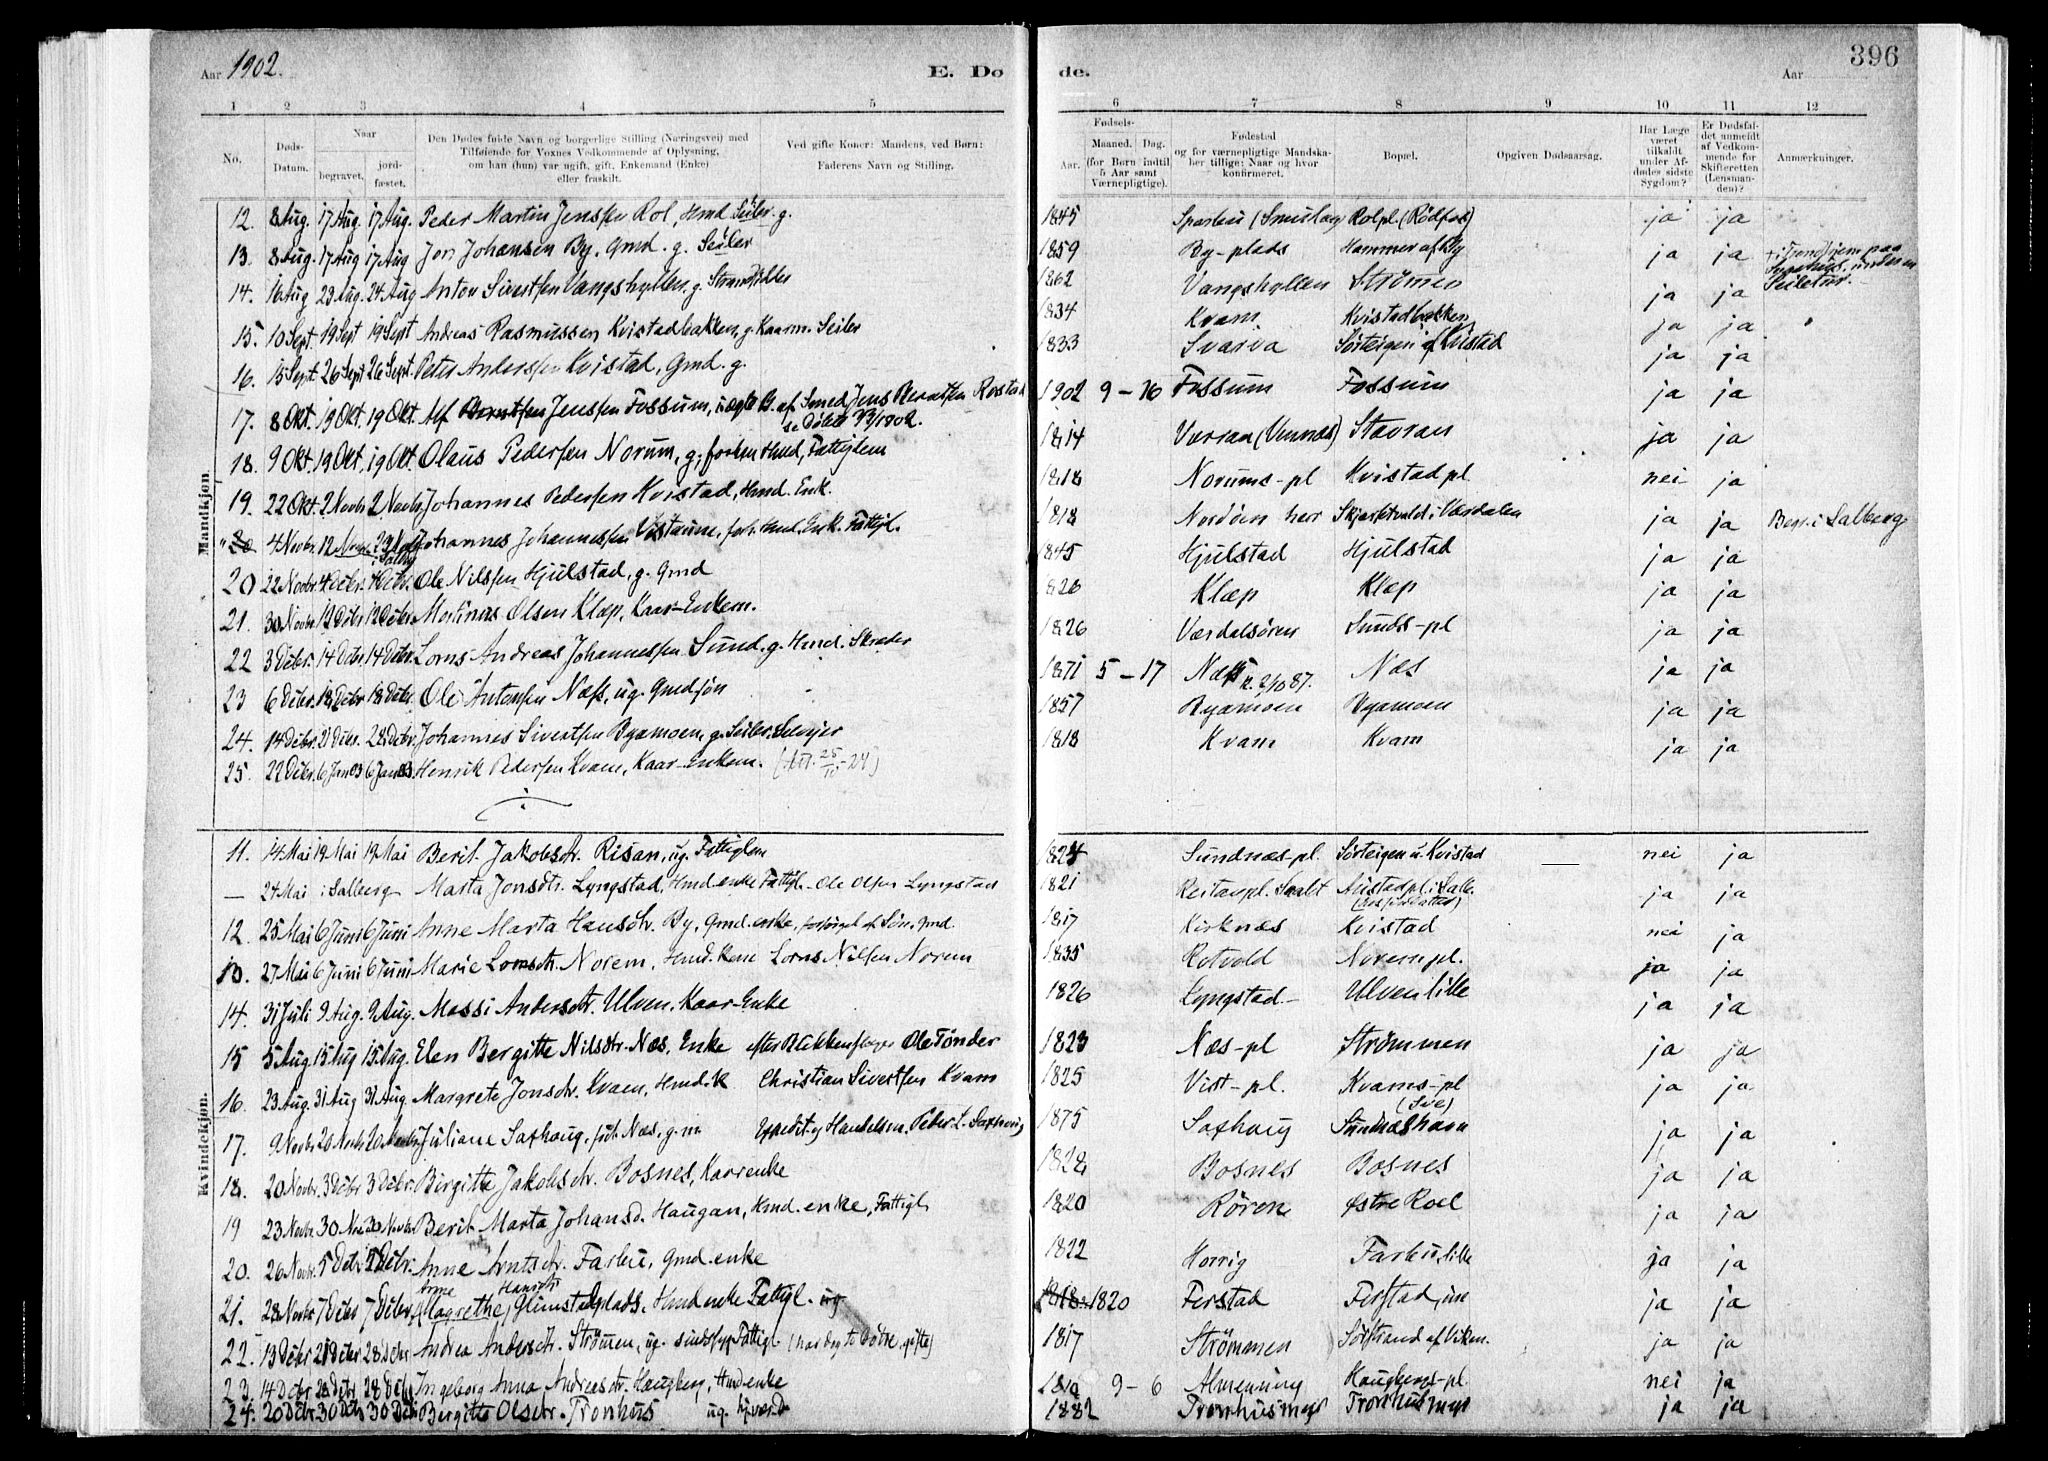 Aar 1902. E. Dø de. Aar 396
1 2 3 4 5 6 7 8 9 10 11 12
No. Døds-Datum. Naar begravet. jord-fæstet. Den Dødes fulde Navn og borgerlige Stilling (Næringsvei) med Tilføiende for Voxnes Vedkommende af Oplysning, om han (hun) var ugift, gift, Enkemand (Enke) eller fraskilt. Ved gifte Koner: Mandens, ved Børn: Faderens Navn og Stilling. Fødsels- Aar. Maaned. Dag. (for Børn indtil 5 Aar samt Værnepligtige). Fødested og for værnepligtige Mandska-ber tillige: Naar og hvor konfirmeret. Bopæl. Opgiven Dødsaarsag. Har Læge været tilkaldt under Af-dødes sidste Sygdom? Er Dødsfal-det anmeldt af Vedkom-mende for Skifteretten (Lensman-den)? Anmærkninger.
Mandkjøn
12. 8 Aug. 17 Aug. 17 Aug. Peder Martin Jenssen Rol, Hmd. Seiler. g. 1845 Sparbu Rolpl. ja ja
13. 8 Aug. 17 Aug 17 Aug Jon Johansen By. Gmd. g. Seiler 1859 By-plads Hammer af By ja ja
14. 16 Aug 23 Aug. 24 Aug Anton Sivertsen Vangshyllen, g. Strandsidder 1862 Vangshyllen Strømen ja ja
15. 10 Sept. 19 Sept 19 Sept Andreas Rasmussen Kvistadbakken, g. Kaarm. Seiler 1834 Kvam Kvistadbakken ja ja
16. 15 Sept. 26 Sept 26 Sept. Peter Anderssen Kvistad, Gmd. g. 1833 Svarva Sørteigen af Kvistad ja ja
17. 8 Okt. 19 Okt. 19 Okt. Alf Jenssen Fossum, uægte B. af Smed Jens Berntsen Rostad 1902 9-26 Fossum Fossum ja ja
18. 9 Okt. 19 Okt. 19 Okt. Olaus Pedersen Norum, g, forhen Hmd, Fattiglem 1814 Værran Stavran ja ja
19. 22 Okt. 2 Novbr 2 Novbr. Johannes Pedersen Kvistad, Hmd. Enk. 1818 Norums-pl Kvistad pl. nei ja
"20 4 Novbr. 12 Johannes Johannessen Hmd. Enk. Fattigl. 1818 Nordöen her i Værdalen ja ja Begr. i Salberg
20 22 Novbr. 4 Debr. 4 Debr. Ole Nilssen Hjulstad, g. Gmd 1845 Hjulstad Hjulstad ja ja
21. 30 Novbr. 12 Debr 12 Debr. Martinus Olsen Klæp, Kaar-Enkem. 1826 Klæp Klæp ja ja
22 3 Debr. 14 Debr. 14 Debr. Lorns Andreas Johannessen Sund. g. Hmd. Skræder 1826 Værdalsøren Sunds-pl ja ja
23 6 Debr. 18 Debr 18 Debr. Ole Antonsen Næss, ug. Gmdsøn 1871 5-17 Næss k. 2/10 87. Næs ja ja
24. 14 Debr. 21 Debr. 28 Debr. Johannes Sivertsen Byamoen, g. Seiler. 1857 Byamoen Byamoen ja ja
25. 22 Debr. 6 Jan 03 6 Jan 03. Henrik Pedersen Kvam, Kaar-Enkem. 1818 Kvam Kvam ja ja
Kvindekjøn.
11. 14 Mai 19 Mai 19 Mai Berit Jakobsdtr. Risan, ug. Fattiglem 1824 Sundnæs-pl. Sørteigen u. Kvistad nei ja
— 24 Mai i Salberg Marta Jonsdtr. Lyngstad, Hmd. enke Fattigl. Ole Olsen Lyngstad 1821 ja ja
12. 25 Mai 6 Juni 6 Juni Anne Marta Hansdtr. By, Gmd. enke, forsørget af Søn. Gmd. 1817 Kirknæs Kvistad nei ja
13. 27 Mai 6 Juni 6 Juni Marie Lornsdtr. Norem, Hmd. kone Lorns Nilsen Norem 1835 Rotvold Norem pl. ja ja
14. 31 Juli 9 Aug. 9 Aug. Massi Andersdtr. Ulven, Kaar-Enke 1826 Lyngstad Ulven lille ja ja
15 5 Aug. 15 Aug 15 Aug. Elen Bergitte Nilsdtr. Næs, Enke efter Blikkenslager Ole Tønder 1823 Næs-pl Strømmen ja ja
16. 23 Aug. 31 Aug 31 Aug. Margrete Jonsdtr. Kvam, Hmd.k Christian Sivertsen Kvam 1825 Vist-pl. Kvams-pl ja ja
17. 9 Novbr. 20 Novbr 20 Novbr. Juliane Saxhaug, født Næs, g. m Expedit. og Handelsm. Peter L. Saxhaug 1875 Saxhaug Sundnæshavn ja ja
18. 20 Novbr. 3 Debr 3 Debr. Birgitte Jakobsdtr. Bosnes, Kaarenke 1822 Bosnes Bosnes ja ja
19 23 Novbr. 30 Nov 30 Novbr. Berit Marta Johansd. Haugan, Hmd. enke, Fattigl. 1820 Røren Østre Roel ja ja
20. 26 Novbr. 5 Debr 5 Debr. Anne Arntsdtr. Farbu, Gmd. enke 1822 Horrig Farbu, lille ja ja
21. 28 Novbr 7 Debr 7 Debr. Anne Magrethe Hansdtr Glimstadplads, Hmd enke Fattigl. ug 1818. 1820 Ferstad ja ja
22. 13 Debr 21 Debr 28 Debr Andrea Andersdtr. Strømen, ug. sindssyg Fattigl (har dog to Døtre, gifte) 1817 Strømmen Sørstrand af Viken. ja ja
23. 14 Debr 28 Debr 28 Deb Ingeborg Anna Andreasdtr. Haugberg, Hmd enke Almenning Haugberg-pl. nei ja
24. 20 Debr 30 Debr 30 Deb Bergitte Olsdtr. Tronhus ug. 1882 9-6 ja ja